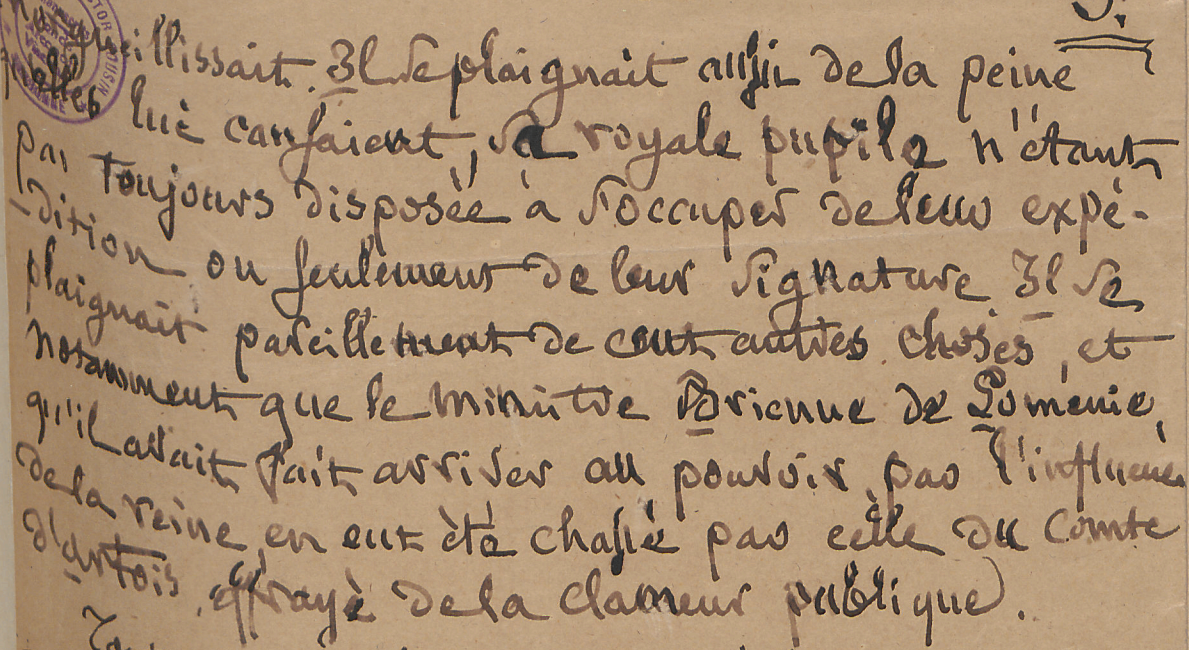 5.
enorgueillissait. Il se plaignait aussi de la peine
qu'elles lui causaient, sa royale pupile n'étant
pas toujours disposée à s'occuper de leur expé-
-dition ou seulement de leur signature Il se
plaignait pareillement de cent autres choses, et
notamment que le ministre Brienne de Loménie,
qu'il avait fait arriver au pouvoir par l'influence
de la reine, en eut été chassé par celle du Comte
d'artois, effrayé de la clameur publique).